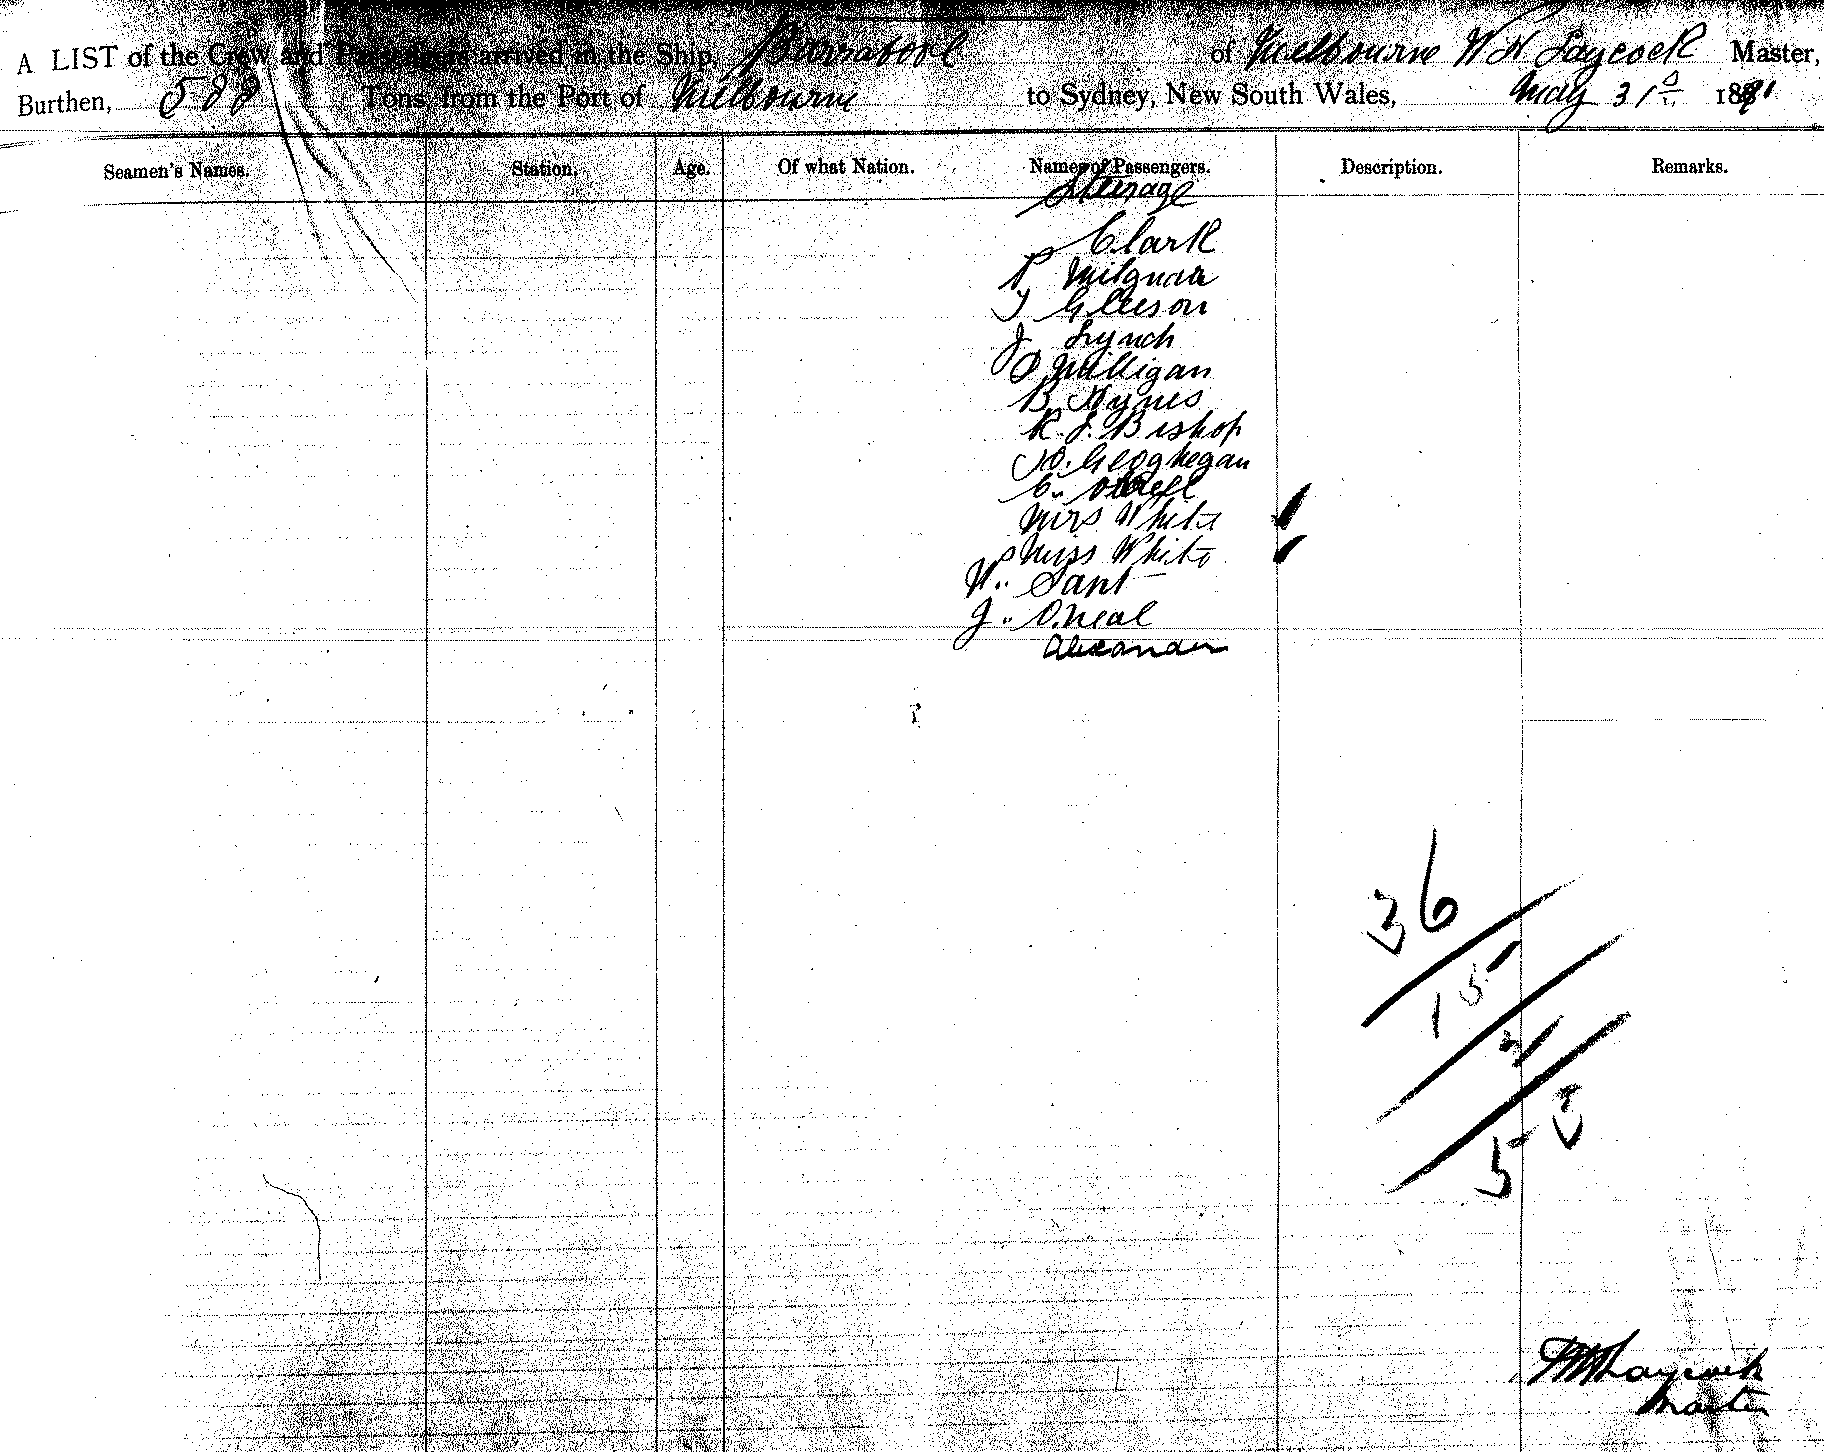 A LIST of the Crew and Passengers arrived in the Ship, Barrabool of Melbourne W H Laycock Master,
Burthen, 588 Tons, from the Port of Melbourne to Sydney, New South Wales, May 31st 1891
Seamen's Names. Station. Age. Of what Nation. Names of Passengers. Description. Remarks.
Steerage
Clark
P
T Gleeson
J Lynch
O Milligan
B Hynes
R. J. Bishop
O. Geoghegan
C.
Mrs White
Miss White
W.. Sant
J.. O.Neal
Alexander
36
15
2
53
WHLaycock
Master